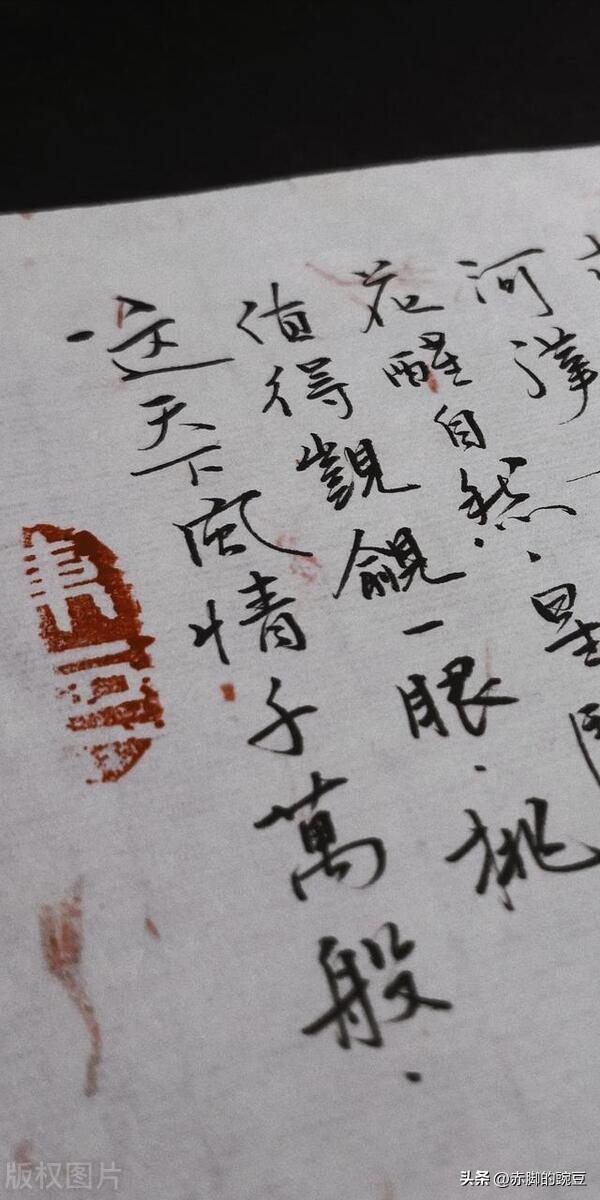 河
花醒自然、星
值得覬覦一眼、挑
这天下風情千萬般.
版权图片
头条 @赤脚的豌豆